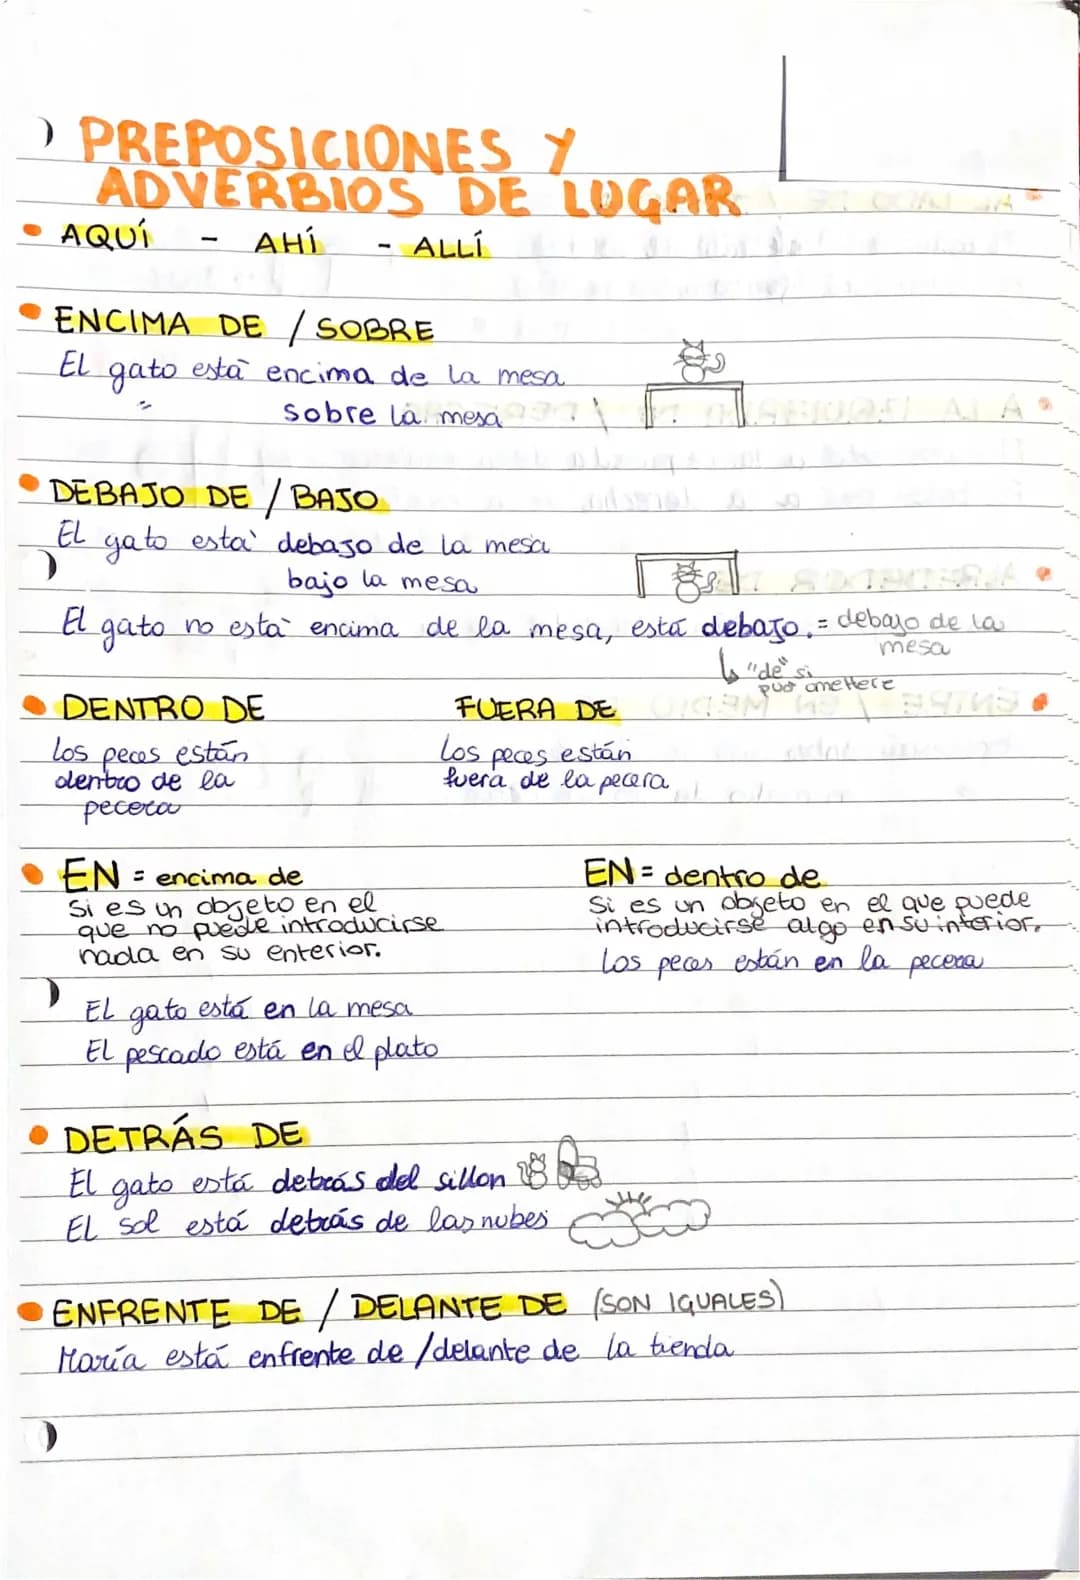 PREPOSICIONES Y
ADVERBIOS DE LUGAR
AQUÍ - AHÍ - ALLÍ
ENCIMA DE / SOBRE
El gato està encima de la mesa
" sobre la mesa
DEBAJO DE / BAJO
El gato esta' debajo de la mesa
bajo la mesa
El gato no està encima de la mesa, está debajo. = debajo de la
mesa
↳ "de" si
può omettere
DENTRO DE FUERA DE
Los peces están Los peces están
dentro de la fuera de la pecera
pecera
EN = encima de EN = dentro de
Si es un objeto en el Si es un objeto en el que puede
que no puede introducirse introducirse algo en su interior.
nada en su enterior. Los peces están en la pecera
El gato está en la mesa
El pescado está en el plato
DETRÁS DE
El gato está detrás del sillon
El sol está detrás de las nubes
ENFRENTE DE / DELANTE DE (SON IGUALES)
María está enfrente de / delante de la tienda